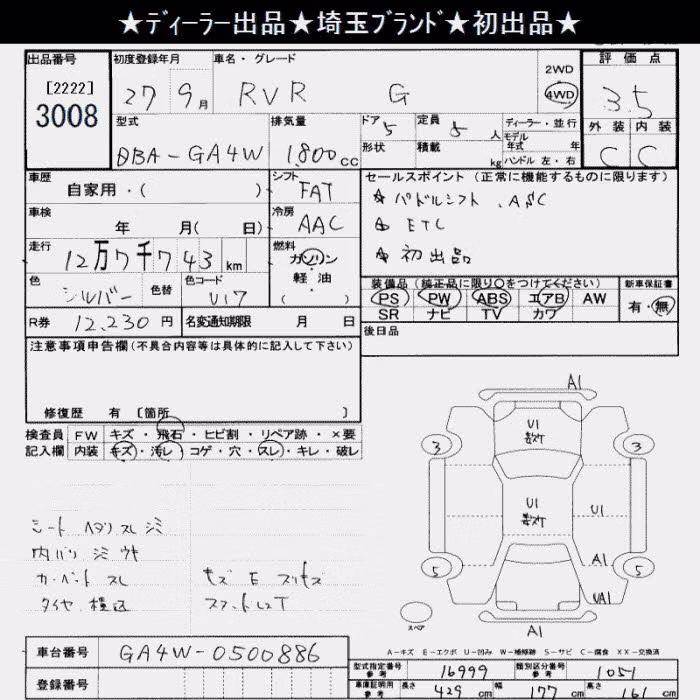 ★ディーラー出品★埼玉ブランド★初出品★
出品番号
[2222]
3008
初度登録年月
27 9月
車名・グレード
RVR G
2WD
4WD
評価点
3.5
外装 内装
C C
型式
DBA-GA4W
排気量
1,800cc
ドア 5
形状
定員 5人
積載 kg
ディーラー・並行
モデル年式 年
ハンドル 左・右
車歴
自家用・( )
シフト
FAT
車検
年 月( 日)
冷房
AAC
走行
12万7千743km
燃料
ガソリン
軽油
( )
色
シルバー
色替
色コード
U17
R券 12,230円
名変通知期限 月 日
セールスポイント(正常に機能するものに限ります)
★ パドルシフト .ASC
★ ETC
★ 初出品
装備品(純正品に限り○をつけてください)
PS PW ABS エアB AW
SR ナビ TV カワ
新車保証書
有・無
後日品
注意事項申告欄(不具合内容等は具体的に記入して下さい)
修復歴 有 [箇所 ]
検査員記入欄
FW キズ・飛石・ヒビ割・リペア跡・×要
内装 キズ・汚レ・コゲ・穴・スレ・キレ・破レ
シート ヘタリ スレ シミ
内バリ シミ
カーペット スレ
タイヤ 積込
A1
U1
3 3
U1
U1
A1
5 5
UA1
スペア
A1
A-キズ E-エクボ U-凹み W-補修跡 S-サビ C-腐食 XX-交換済
車台番号 GA4W-0500886
登録番号
型式指定番号 参考 16999
類別区分番号 参考 1051
車庫証明用 参考 長さ 429cm 幅 177cm 高さ 161cm